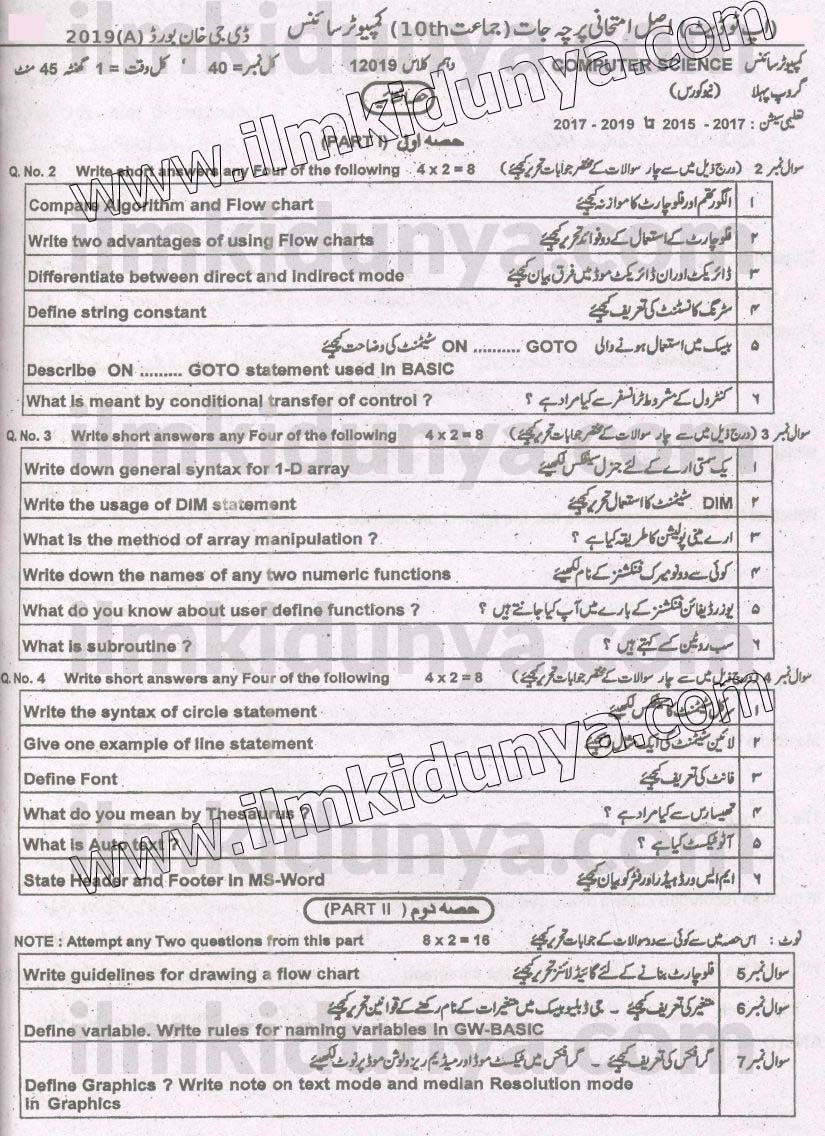 (اپ ٹو ڈیٹ) اصل امتحانی پرچہ جات (جماعت 10th) کمپیوٹر سائنس ڈی جی خان بورڈ 2019 (A)
کمپیوٹر سائنس COMPUTER SCIENCE دہم کلاس 12019 کل نمبر = 40 ' کل وقت = 1 گھنٹہ 45 منٹ
گروپ پہلا (نیو کورس) حصہ انشائیہ
تعلیمی سیشن : 2017 - 2015 تا 2019 - 2017
حصہ اوّل (PART I)
Q. No. 2 Write short answers any Four of the following 4 x 2 = 8 سوال نمبر 2 (درج ذیل میں سے چار سوالات کے مختصر جوابات تحریر کیجئے)
Compare Algorithm and Flow chart الگورتھم اور فلو چارٹ کا موازنہ کیجئے ۱
Write two advantages of using Flow charts فلو چارٹ کے استعمال کے دو فوائد تحریر کیجئے ۲
Differentiate between direct and indirect mode ڈائریکٹ اور ان ڈائریکٹ موڈ میں فرق بیان کیجئے ۳
Define string constant سٹرنگ کانسٹنٹ کی تعریف کیجئے ۴
بیسک میں استعمال ہونے والی ON .......... GOTO سٹیٹمنٹ کی وضاحت کیجئے ۵
Describe ON ......... GOTO statement used in BASIC
What is meant by conditional transfer of control ? کنٹرول کے مشروط ٹرانسفر سے کیا مراد ہے ؟ ۶
Q. No. 3 Write short answers any Four of the following 4 x 2 = 8 سوال نمبر 3 (درج ذیل میں سے چار سوالات کے مختصر جوابات تحریر کیجئے)
Write down general syntax for 1-D array یک سمتی ارے کے لئے جنرل سینٹکس لکھیئے ۱
Write the usage of DIM statement DIM سٹیٹمنٹ کا استعمال تحریر کیجئے ۲
What is the method of array manipulation ? ارے مینی پولیشن کا طریقہ کیا ہے ؟ ۳
Write down the names of any two numeric functions کوئی سے دو نیومیرک فنکشنز کے نام لکھیئے ۴
What do you know about user define functions ? یوزر ڈیفائن فنکشنز کے بارے میں آپ کیا جانتے ہیں ؟ ۵
What is subroutine ? سب روٹین کسے کہتے ہیں ؟ ۶
Q. No. 4 Write short answers any Four of the following 4 x 2 = 8 سوال نمبر 4 (درج ذیل میں سے چار سوالات کے مختصر جوابات تحریر کیجئے)
Write the syntax of circle statement سرکل سٹیٹمنٹ کا سینٹکس لکھیئے ۱
Give one example of line statement لائین سٹیٹمنٹ کی ایک مثال دیجئے ۲
Define Font فانٹ کی تعریف کیجئے ۳
What do you mean by Thesaurus ? تھیسارس سے کیا مراد ہے ؟ ۴
What is Auto text ? آٹو ٹیکسٹ کیا ہے ؟ ۵
State Header and Footer in MS-Word ایم ایس ورڈ ہیڈر اور فٹر کو بیان کیجئے ۶
حصہ دوم (PART II)
NOTE : Attempt any Two questions from this part 8 x 2 = 16 نوٹ : اس حصہ میں سے کوئی سے دو سوالات کے جوابات تحریر کیجئے
Write guidelines for drawing a flow chart فلو چارٹ بنانے کے لئے گائیڈ لائنز تحریر کیجئے سوال نمبر 5
متغیر کی تعریف کیجئے ۔ جی ڈبلیو بیسک میں متغیرات کے نام رکھنے کے قوانین تحریر کیجئے سوال نمبر 6
Define variable. Write rules for naming variables in GW-BASIC
گرافکس کی تعریف کیجئے ۔ گرافکس میں ٹیکسٹ موڈ اور میڈیم ریزولوشن موڈ پر نوٹ لکھیئے سوال نمبر 7
Define Graphics ? Write note on text mode and median Resolution mode
in Graphics
www.ilmkidunya.com
www.ilmkidunya.com
ilmkidunya.com
ilmkidunya.com
ilmkidunya.com
ilmkidunya.com
ilmkidunya.com
ilmkidunya.com